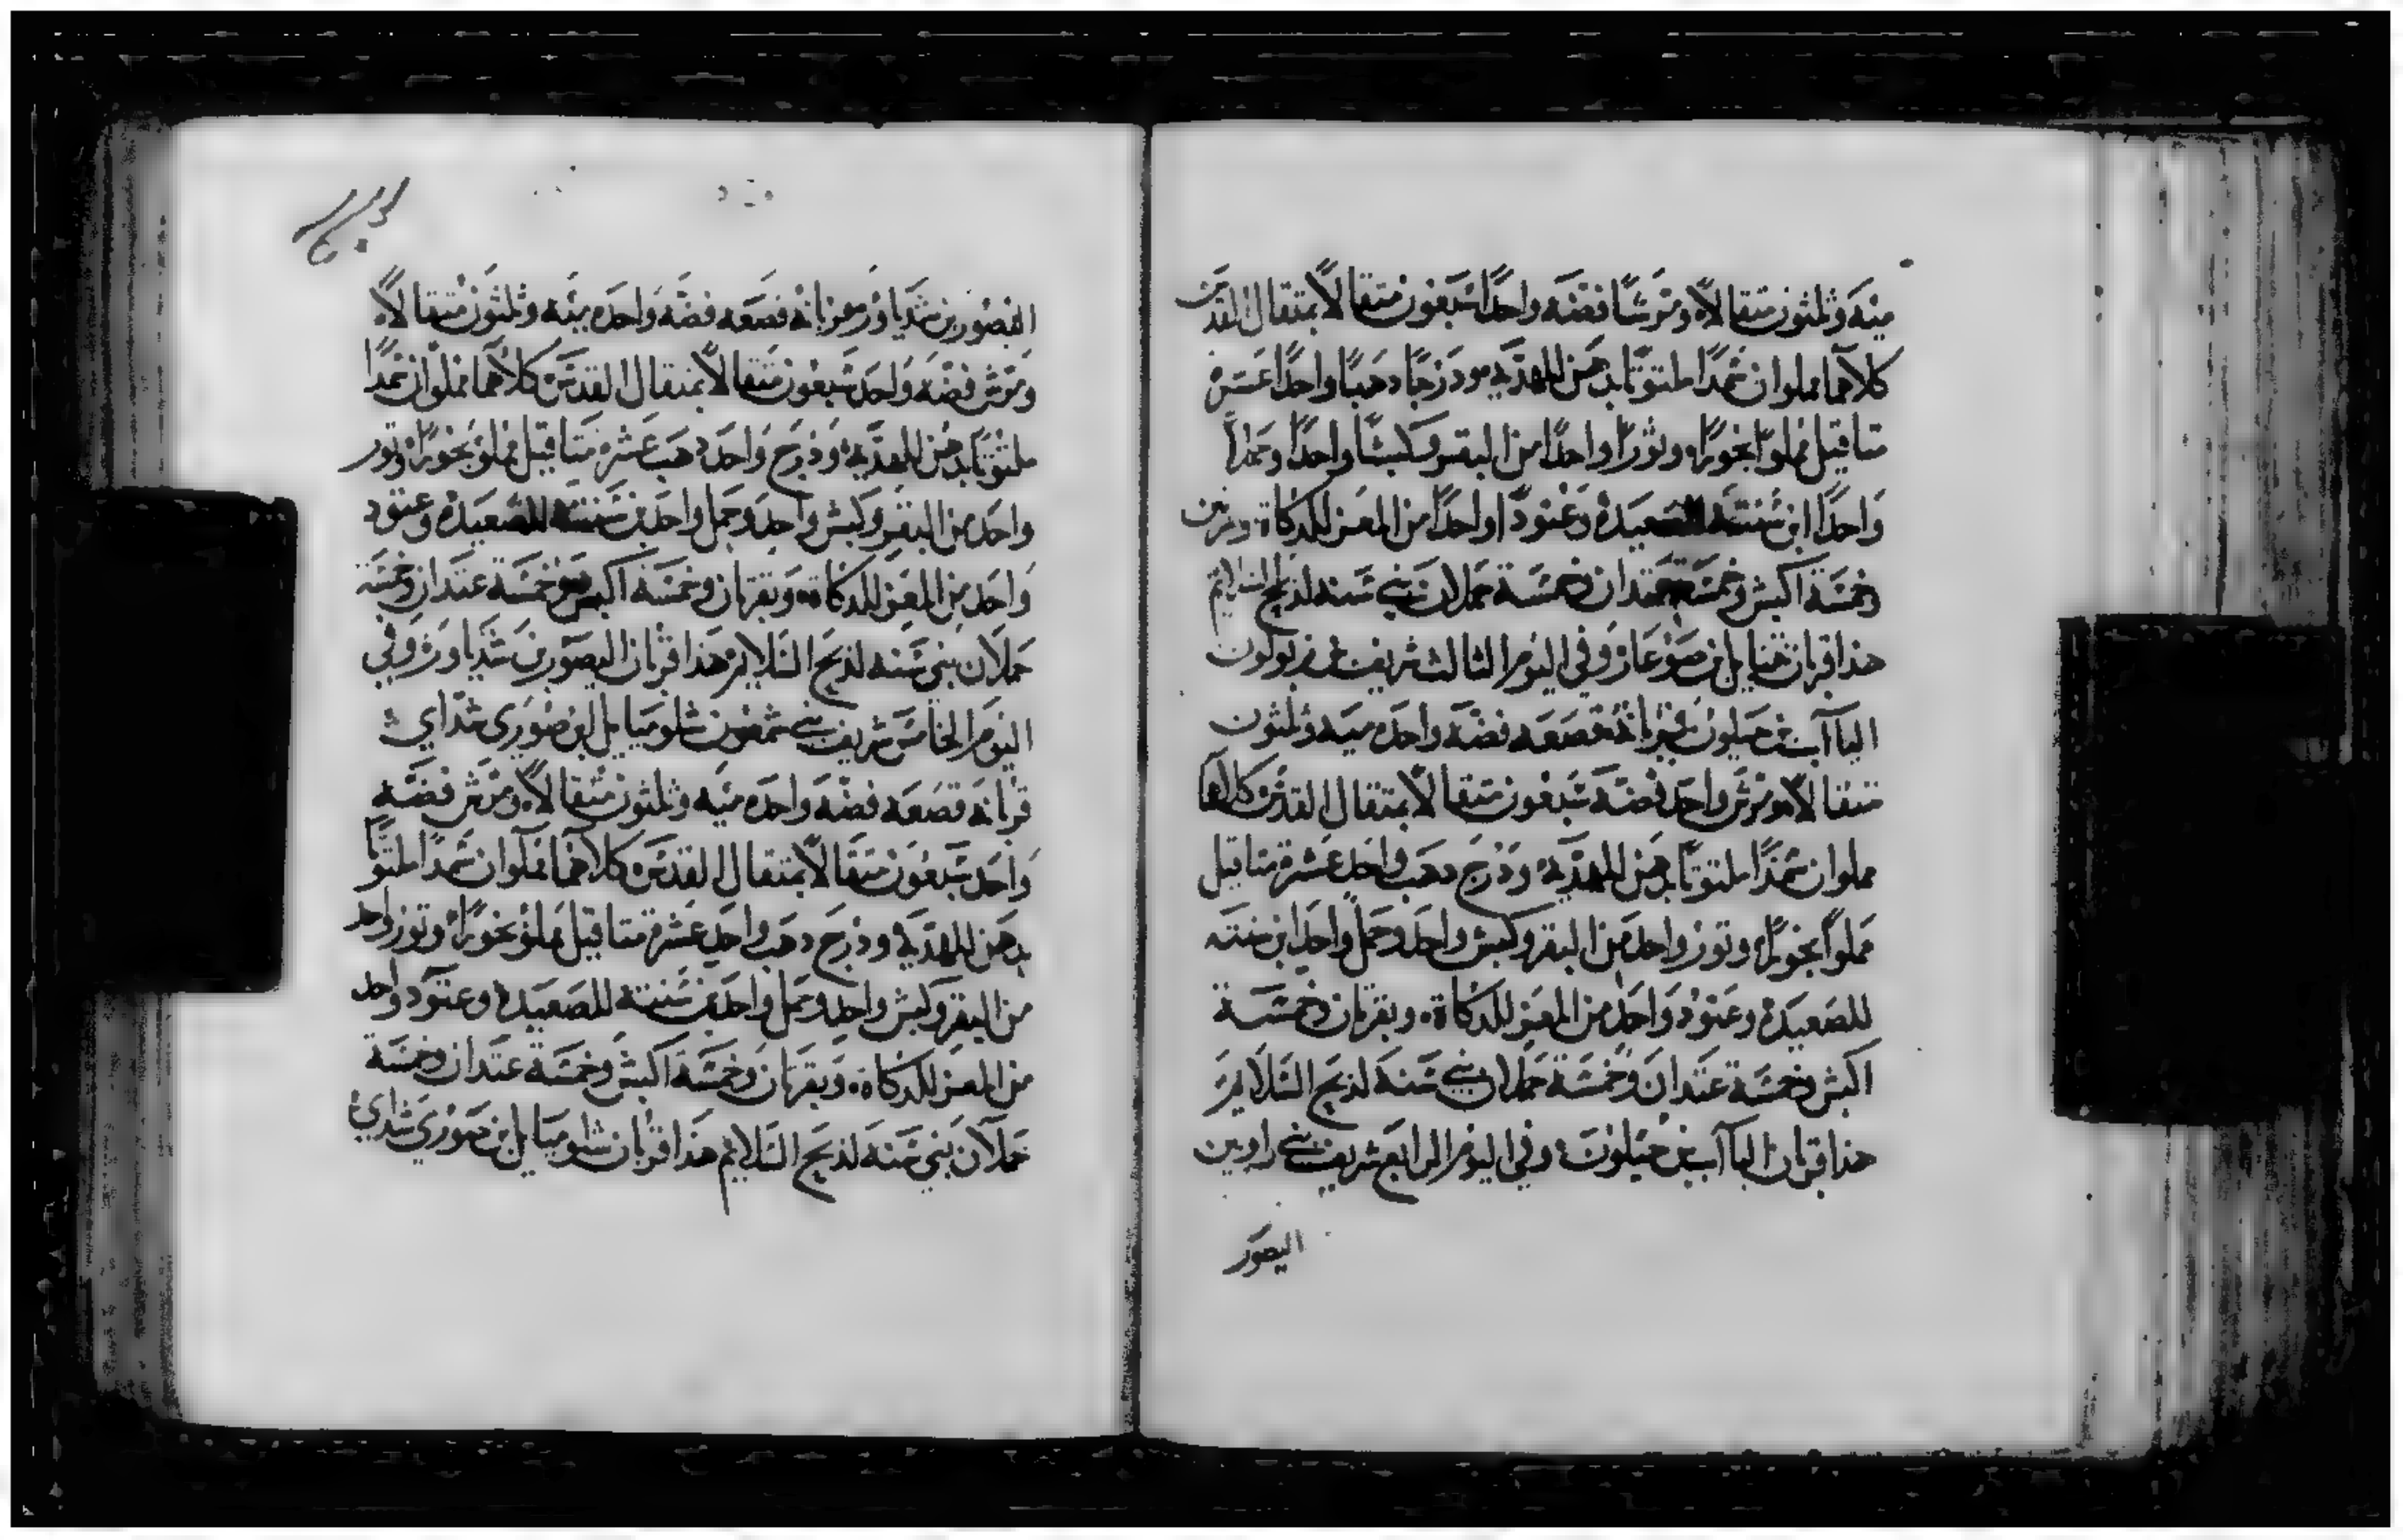 ميَه وثلثون متقالاً ومَرشًا فضَه واحدًا سَبعون متقالاً بمتقال القدس
كلاهما مملوان سَمدًا ملتوتًا بدهن للهديه ودرجًا دهبًا واحدًا عشره
متاقيل مملوًا بخورًا وثورًا واحدًا من البقر وكبشًا واحدًا وحملاً
واحدًا ابن سَنته للصعيده وعتودًا واحدًا من المعز للدكاة وبقرتين
وخمسَة اكبش وخمسَة عتدان وخمسَة حملان بني سَنه لذبح السَلايم
هذا قربان نتنايل ابن صَوعار وفي اليوم الثالث شريف بني زبولون
الياآب بن حيلون قربانه قصَعه فضَه واحده ميه وثلثون
متقالاً ومرش واحد فضَه سَبعون متقالاً بمتقال القدس كلاهما
مملوان سَمدًا ملتوتًا بدهن للهديه ودَرج دهب واحد عشرة متاقيل
مَملوًا بخورًا وتور واحد من البقر وكبش واحد وحمل واحد ابن سَنته
للصَعيده وعتود واحد من المعز للدكاة وبقرتان وخمسَة
اكبش وخمسَة عتدان وخمسَة حملان بني سَنه لذبح السَلايم
هذا قربان الياآب بن حيلون وفي اليوم الرابع شريف بني راوبين
اليصَور
اليصَور بن شدياور قربانه قصَعه فضَه واحده ميَه وثلثون متقالاً
ومَرش فضه واحد سَبعون متقالاً بمتقال القدس كلاهما مملوان سَمدًا
ملتوتًا بدهن للهديه ودرج واحد دهب عشره متاقيل مملو بخورًا وتور
واحد من البقر وكبش واحد وحمل واحد بن سَنته للصَعيده وعتود
واحد من المعز للدكاة وبقرتان وخمسَة اكبش وخمسَة عتدان وخمسَة
حملان بني سَنه لذبح السَلايم هذا قربان اليصور بن شدياور وفي
اليوم الخامس شريف بني شمعون شلوميايل ابن صَوري شداي
قربانه قصَعه فضَه واحده ميَه وثلثون متقالاً ومرش فضَه
واحد سَبعون متقالاً بمتقال القدس كلاهما مملوان سَمدًا ملتوتًا
بدهن للهديه ودرج دهب واحد عشرة متاقيل مملو بخورًا وتور واحد
من البقر وكبش واحد وحمل واحد بن سَنته للصَعيده وعتود واحد
من المعز للدكاة وبقرتان وخمسَة اكبش وخمسَة عتدان وخمسَة
حملان بني سَنه لذبح السَلايم هذا قربان شلوميايل ابن صَوري شداي